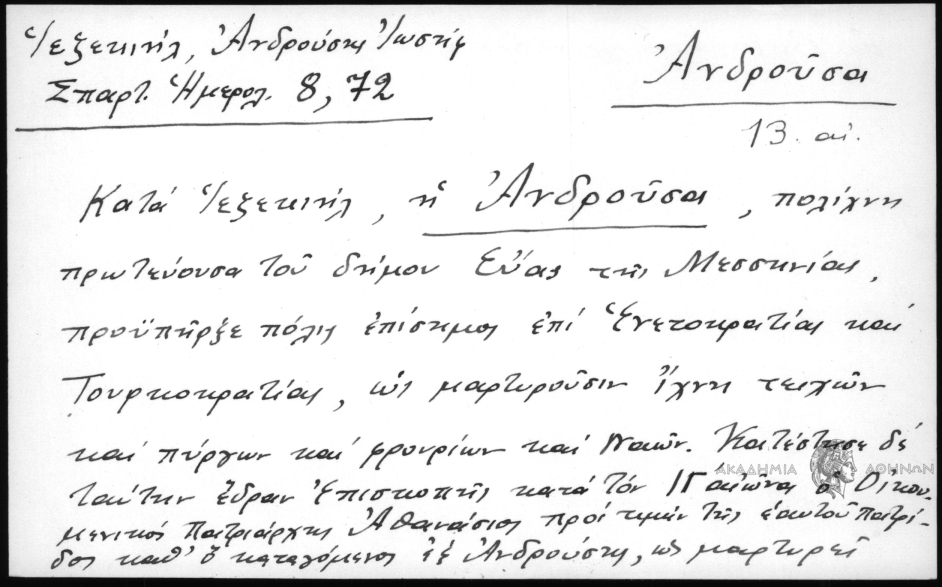 Ἰεζεκιήλ, Ἀνδρούσης Ἰωσήφ
Σπαρτ. Ἡμερολ. 8, 72
Ἀνδροῦσα
13. αἰ.
Κατά Ἰεζεκιήλ, ἡ Ἀνδροῦσα, πολίχνη
πρωτεύουσα τοῦ δήμου Εὔας τῆς Μεσσηνίας,
προϋπῆρξε πόλις ἐπίσημος ἐπί Ἑνετοκρατίας καί
Τουρκοκρατίας, ὡς μαρτυροῦσιν ἴχνη τειχῶν
καί πύργων καί φρουρίων καί ναῶν. Κατέστησε δέ
ταύτην ἕδραν Ἐπισκοπῆς κατά τόν ΙΓ αἰῶνα ὁ Οἰκου-
μενικός Πατριάρχης Ἀθανάσιος πρός τιμήν τῆς ἑαυτοῦ πατρί-
δος καθ' ὅ καταγόμενος ἐξ Ἀνδρούσης, ὡς μαρτυρεῖ
ΑΚΑΔΗΜΙΑ ΑΘΗΝΩΝ